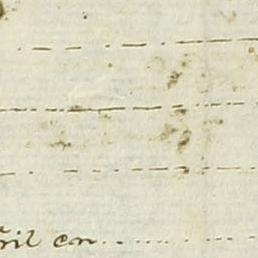 ñil en